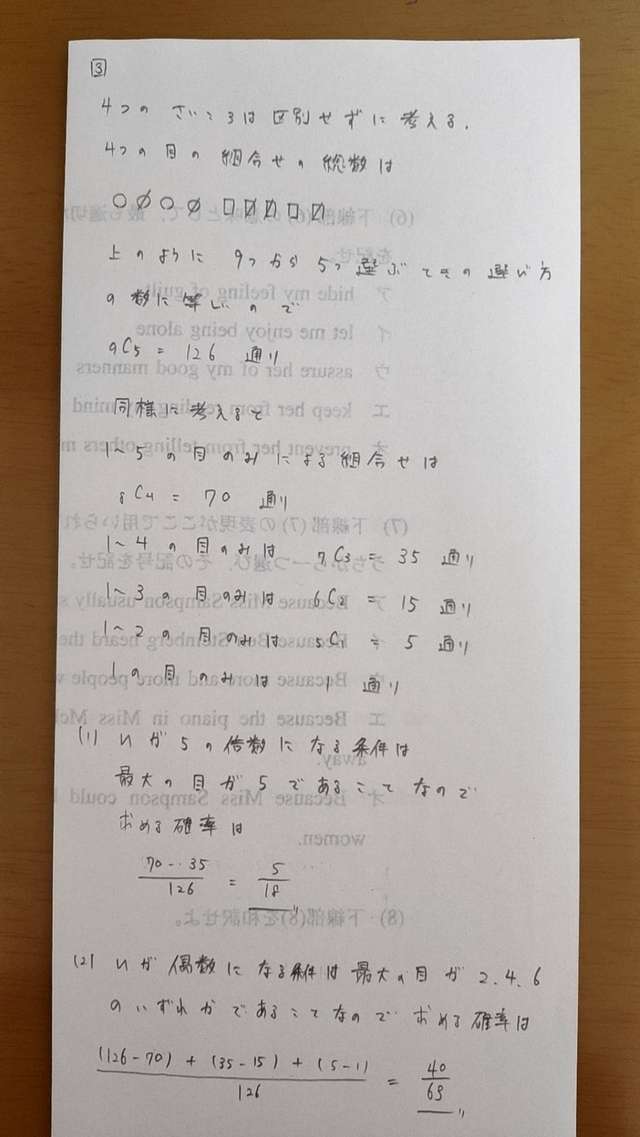 3
4つの さいころは 区別せずに 考える.
4つの 目の 組合せの 総数は
○ ∅ ○ ∅ □ ⍁ ⍁ □ ⍁
上のように 9つから 5つ 選ぶ ときの 選び方
の 数に 等しいので
9C5 = 126 通り
同様に 考えると
1~5 の 目のみに よる 組合せは
8C4 = 70 通り
1~4 の目のみは 7C3 = 35 通り
1~3 の目のみは 6C2 = 15 通り
1~2 の目のみは 5C1 = 5 通り
1の目のみは 1 通り
(1) Nが 5の倍数になる条件は
最大の目が5であることなので
求める確率は
(70-35)/126 = 5/18
(2) Nが 偶数になる条件は 最大の目が 2.4.6
のいずれかであることなので 求める確率は
((126-70) + (35-15) + (5-1))/126 = 40/63